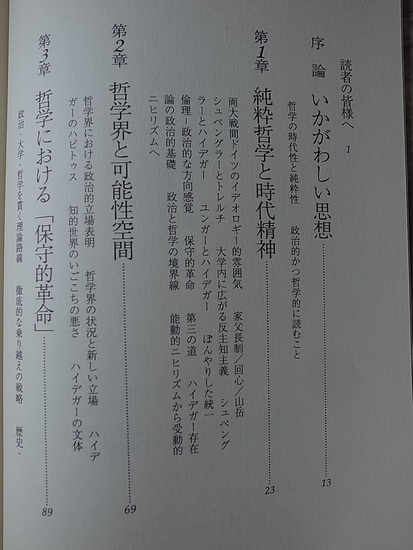 読者の皆様へ 1
序論 いかがわしい思想 13
哲学の時代性と純粋性 政治的かつ哲学的に読むこと
第1章 純粋哲学と時代精神 23
両大戦間ドイツのイデオロギー的雰囲気 家父長制／回心／山岳
シュペングラーとトレルチ 大学内に広がる反主知主義 シュペング
ラーとハイデガー ユンガーとハイデガー ぼんやりした統一
倫理−政治的な方向感覚 保守的革命 第三の道 ハイデガー存在
論の政治的基礎 政治と哲学の境界線 能動的ニヒリズムから受動的
ニヒリズムへ
第2章 哲学界と可能性空間 69
哲学界における政治的立場表明 哲学界の状況と新しい立場 ハイデ
ガーのハビトゥス 知的世界のいごこちの悪さ ハイデガーの文体
第3章 哲学における「保守的革命」 89
政治・大学・哲学を貫く理論路線 徹底的な乗り越えの戦略 歴史・